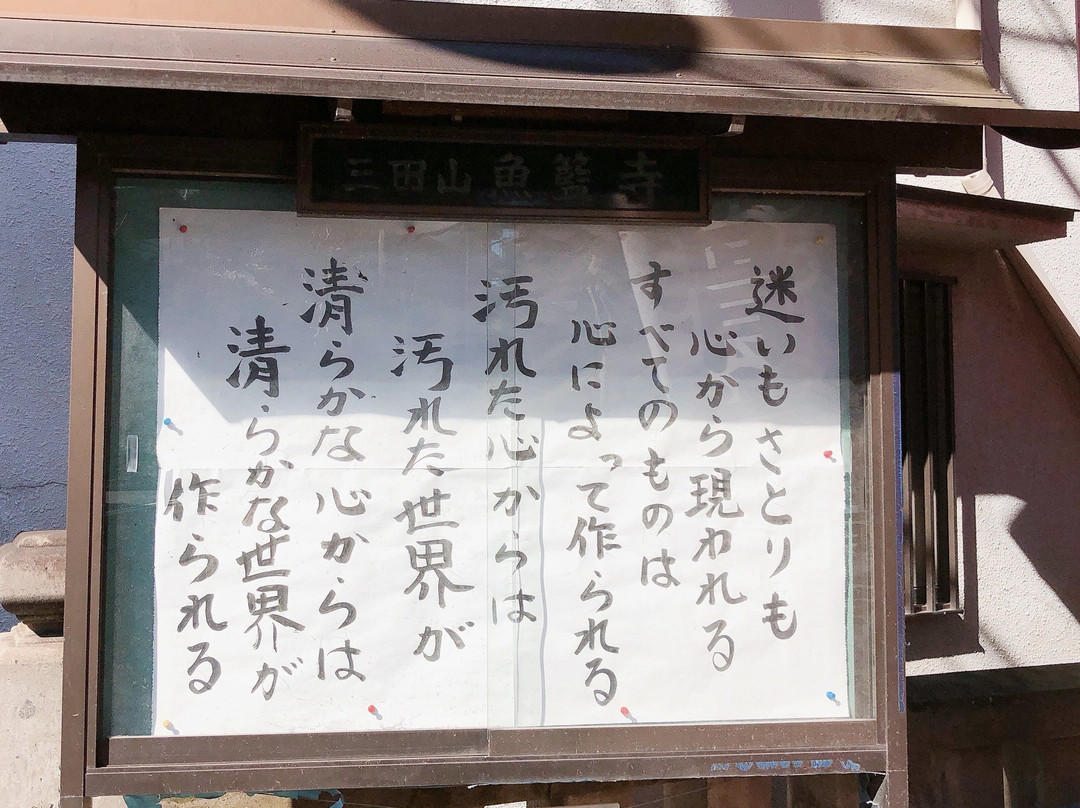 三田山 魚籃寺
迷いもさとりも
心から現われる
すべてのものは
心によって作られる
汚れた心からは
汚れた世界が
清らかな心からは
清らかな世界が
作られる